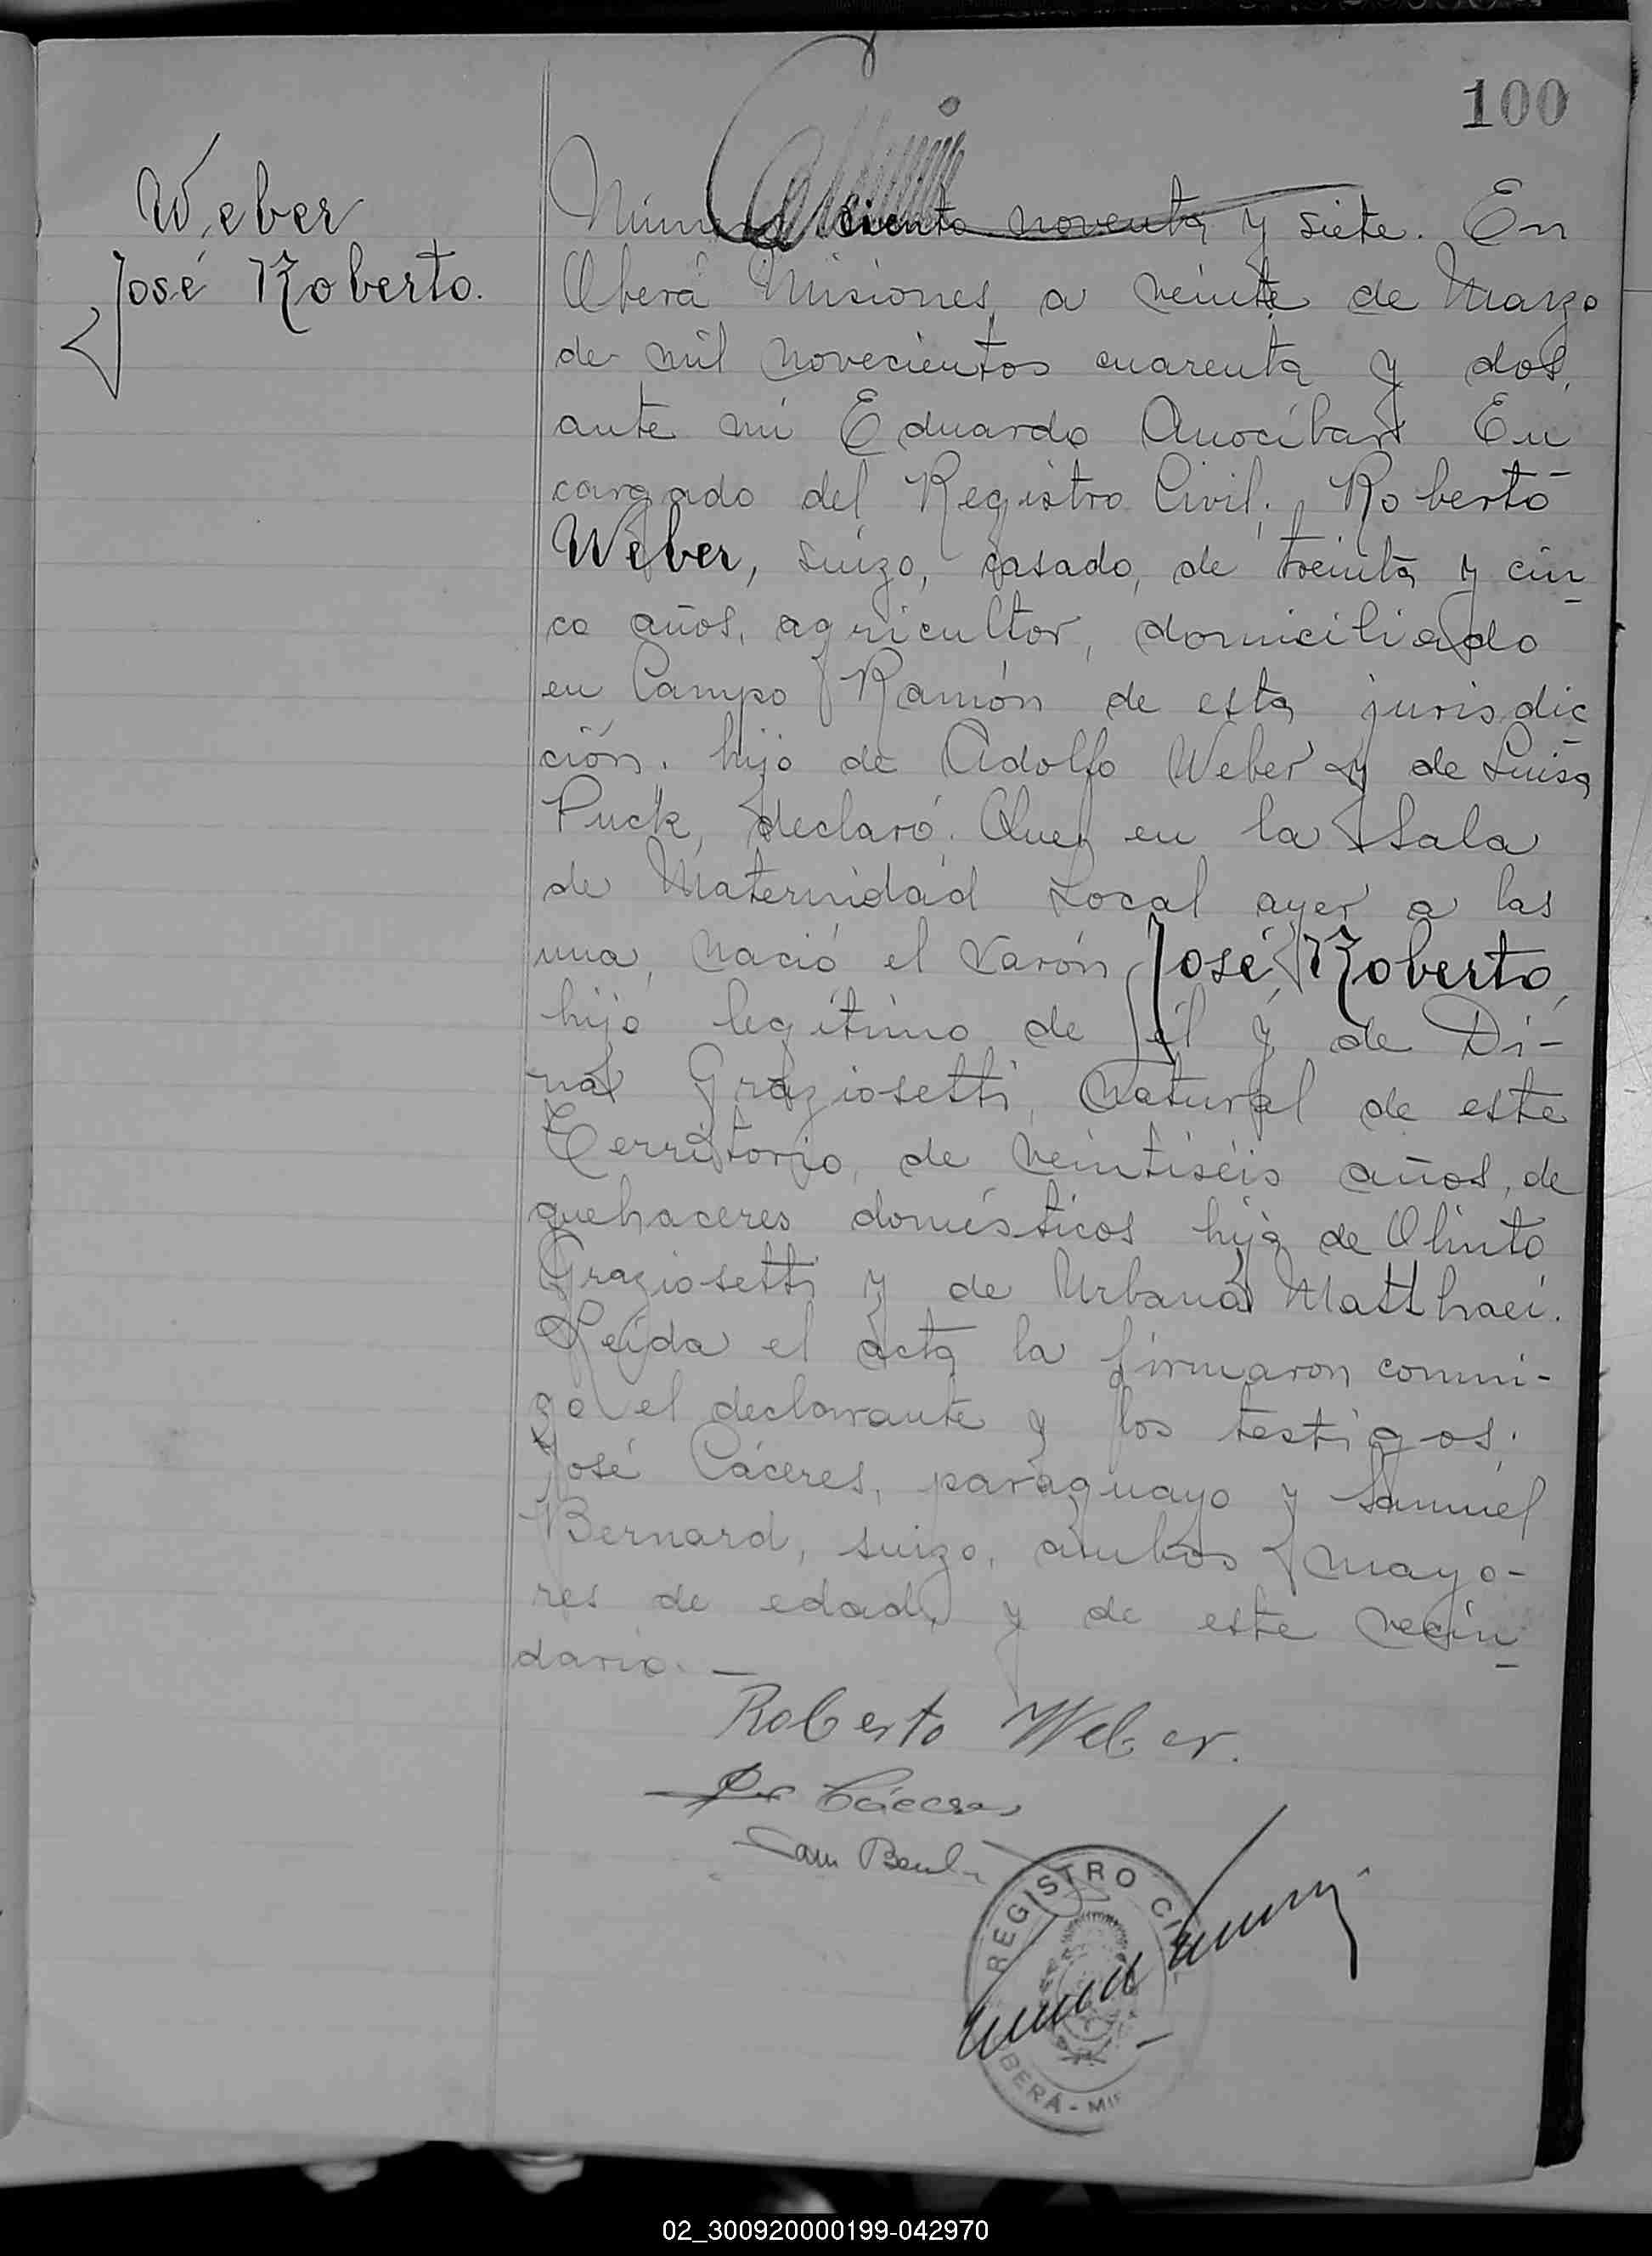 100
Weber
José Roberto.
Número ciento noventa y siete. En
Oberá Misiones, a veinte de Marzo
de mil novecientos cuarenta y dos,
ante mí Eduardo Anocíbar En
cargado del Registro Civil; Roberto
Weber, suizo, casado, de treinta y cin
co años, agricultor, domiciliado
en Campo Ramón de esta jurisdic
ción. hijo de Adolfo Weber y de Luisa
Puck, declaró. Que en la Sala
de Maternidad Local ayer a las
una, nació el varón José Roberto,
hijo legítimo de él y de Di-
na Graziosetti, natural de este
Territorio, de veintiséis años, de
quehaceres domésticos hija de Olinto
Graziosetti y de Urbana Matthaei.
Leída el acta la firmaron conmi-
go el declarante y los testigos:
José Cáceres, paraguayo y Samuel
Bernard, suizo, ambos mayo-
res de edad, y de este vecin
dario. —
Roberto Weber.
Cáceres
Sam
REGISTRO CIVIL
BERÁ - MIS
02_300920000199-042970